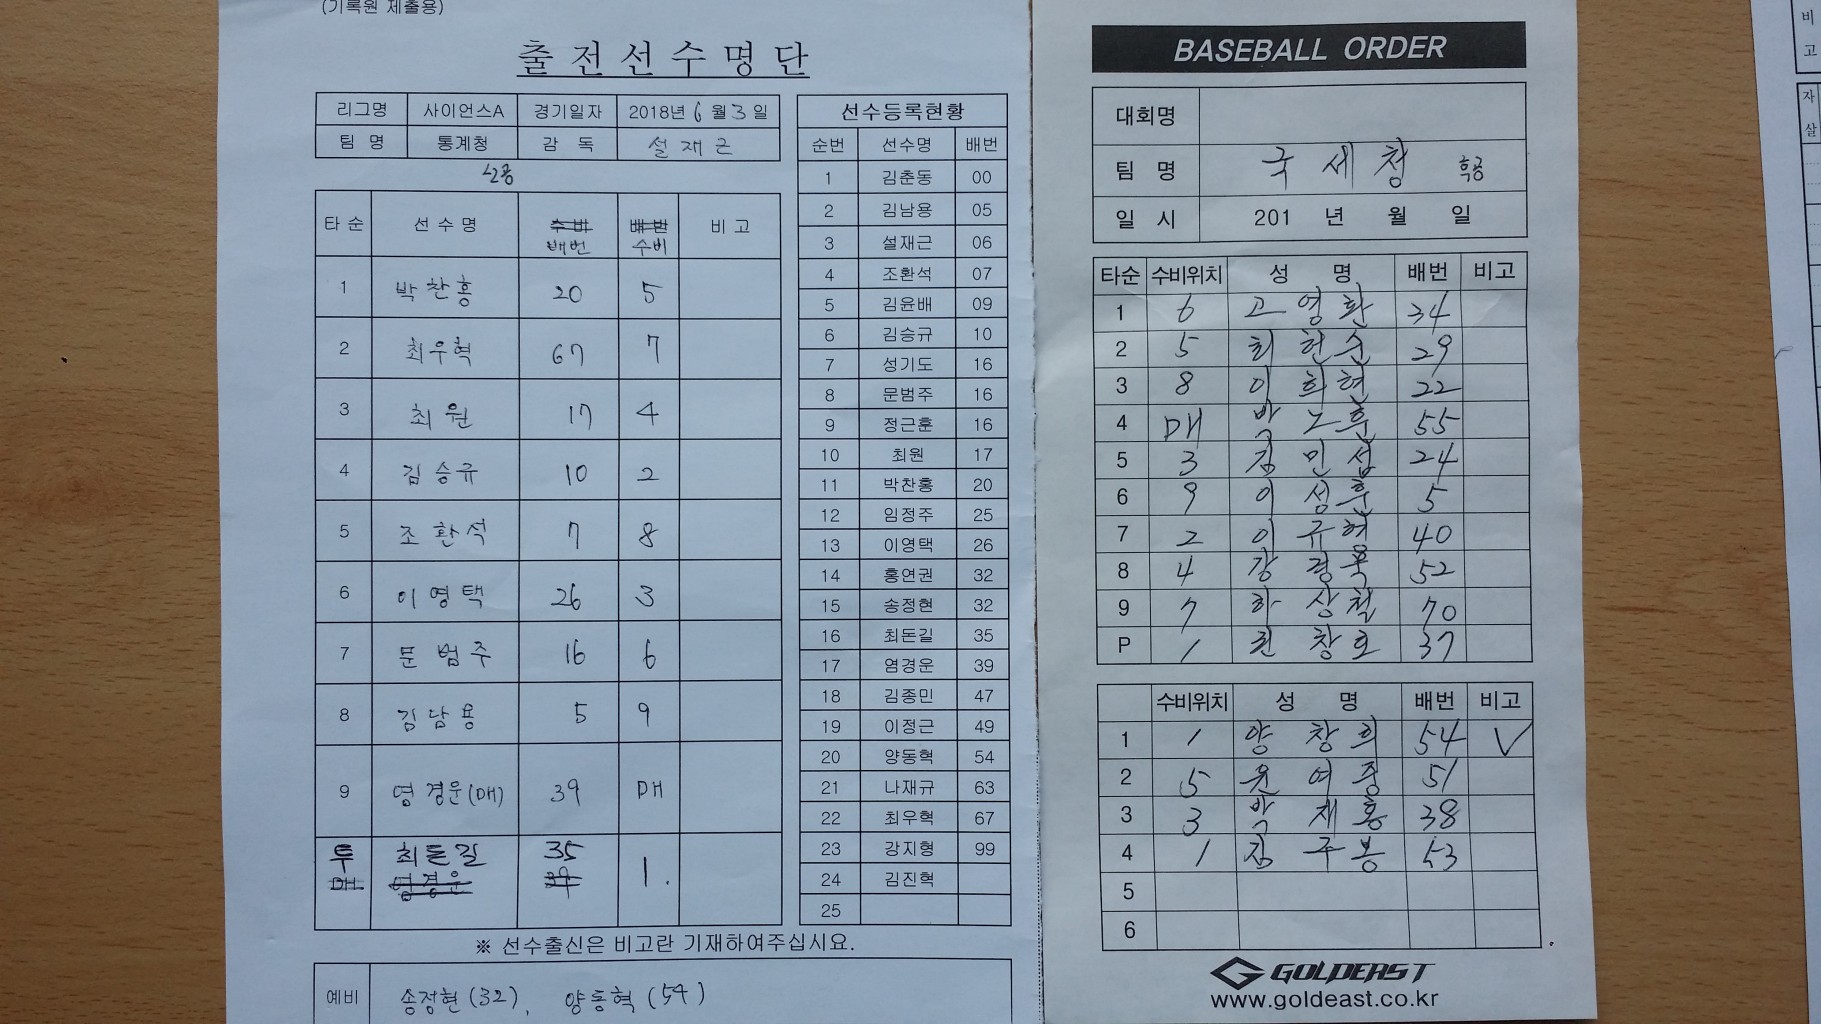 (기록원 제출용)
출전선수명단
리그명 사이언스A 경기일자 2018년 6월 3일
팀명 통계청 감독 설재근
선공
타순 선수명 수비 배번 비고
배번 수비
1 박찬홍 20 5
2 최우혁 67 7
3 최원 17 4
4 김승규 10 2
5 조환석 7 8
6 이영택 26 3
7 문범주 16 6
8 김남용 5 9
9 염경운(DH) 39 DH
투 최돈길 35 1.
DH 염경운 39
※ 선수출신은 비고란 기재하여주십시요.
예비 송정현(32), 양동혁(54)
선수등록현황
순번 선수명 배번
1 김춘동 00
2 김남용 05
3 설재근 06
4 조환석 07
5 김윤배 09
6 김승규 10
7 성기도 16
8 문범주 16
9 정근훈 16
10 최원 17
11 박찬홍 20
12 임정주 25
13 이영택 26
14 홍연권 32
15 송정현 32
16 최돈길 35
17 염경운 39
18 김종민 47
19 이정근 49
20 양동혁 54
21 나재규 63
22 최우혁 67
23 강지형 99
24 김진혁
25
BASEBALL ORDER
대회명
팀명 국세청 후공
일시 201 년 월 일
타순 수비위치 성명 배번 비고
1 6 고영환 34
2 5 최헌순 29
3 8 이희현 22
4 DH 박노훈 55
5 3 김민섭 24
6 9 이성훈 5
7 2 이규혁 40
8 4 강경묵 52
9 7 하상철 70
P 1 권창호 37
수비위치 성명 배번 비고
1 1 양창희 54 V
2 5 윤여중 51
3 3 박재홍 38
4 1 김주봉 53
5
6
GOLDEAST
www.goldeast.co.kr
비
고
자
살